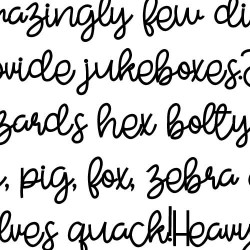 mazingly few di
ovide jukeboxes?
zards hex bolty
, pig, fox, zebra
lves quack!Heav